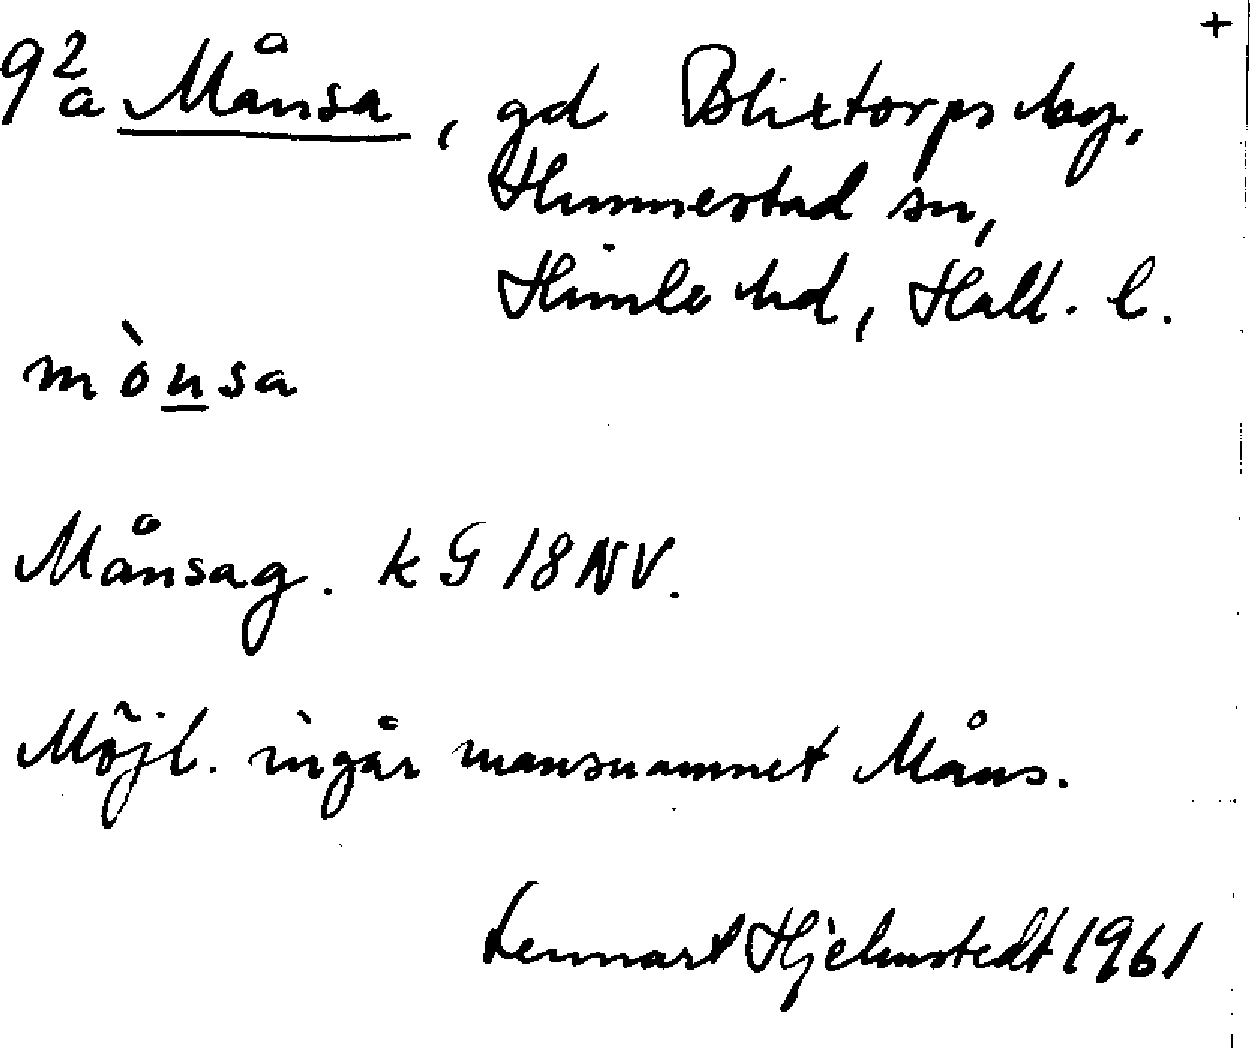 +
9 2/a Månsa, gd Blixtorps by,
Hunnestad sn,
Himle hd, Hall. l.
mònsa
Månsag. k G 18 NV.
Möjl. ingår mansnamnet Måns.
Lennart Hjelmstedt 1961